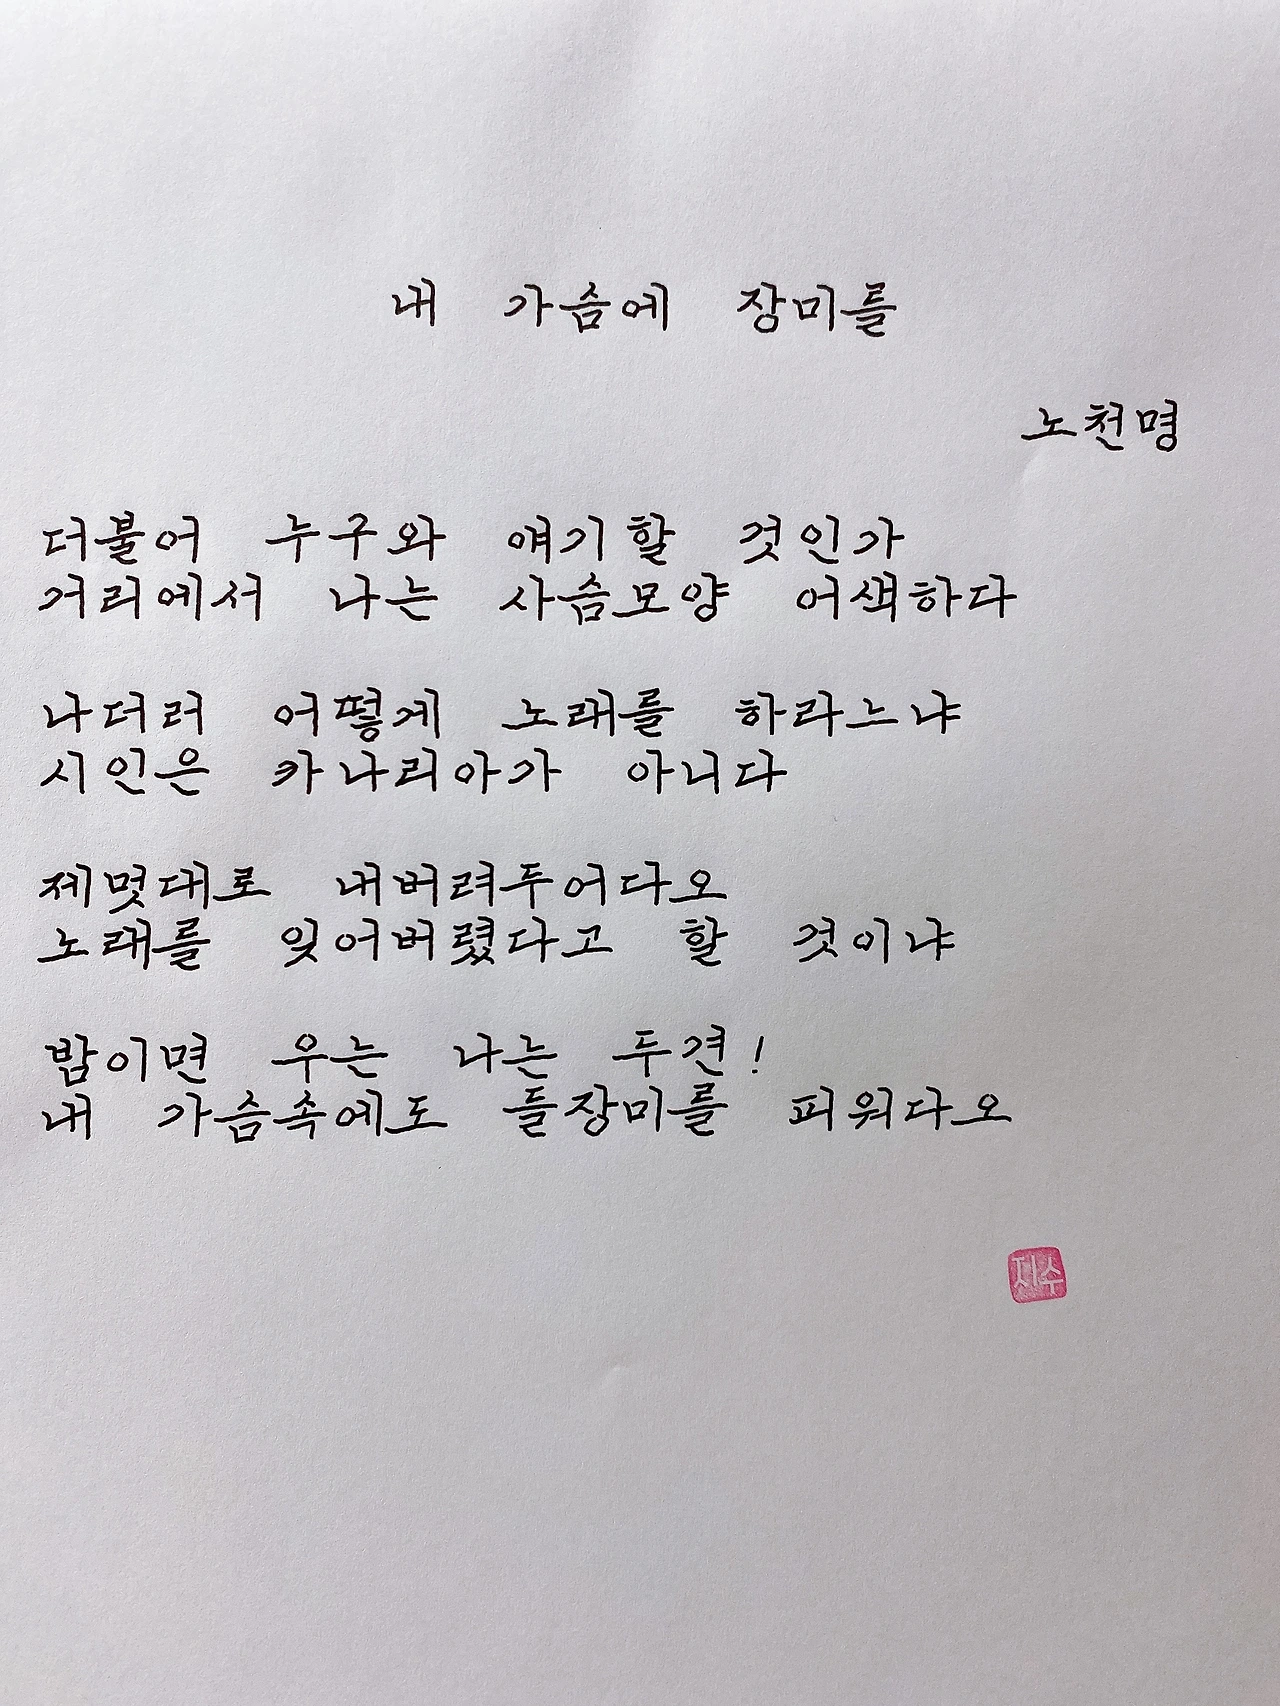 내 가슴에 장미를
노천명
더불어 누구와 얘기할 것인가
거리에서 나는 사슴모양 어색하다
나더러 어떻게 노래를 하라느냐
시인은 카나리아가 아니다
제멋대로 내버려두어다오
노래를 잊어버렸다고 할 것이냐
밤이면 우는 나는 두견!
내 가슴속에도 들장미를 피워다오
지수